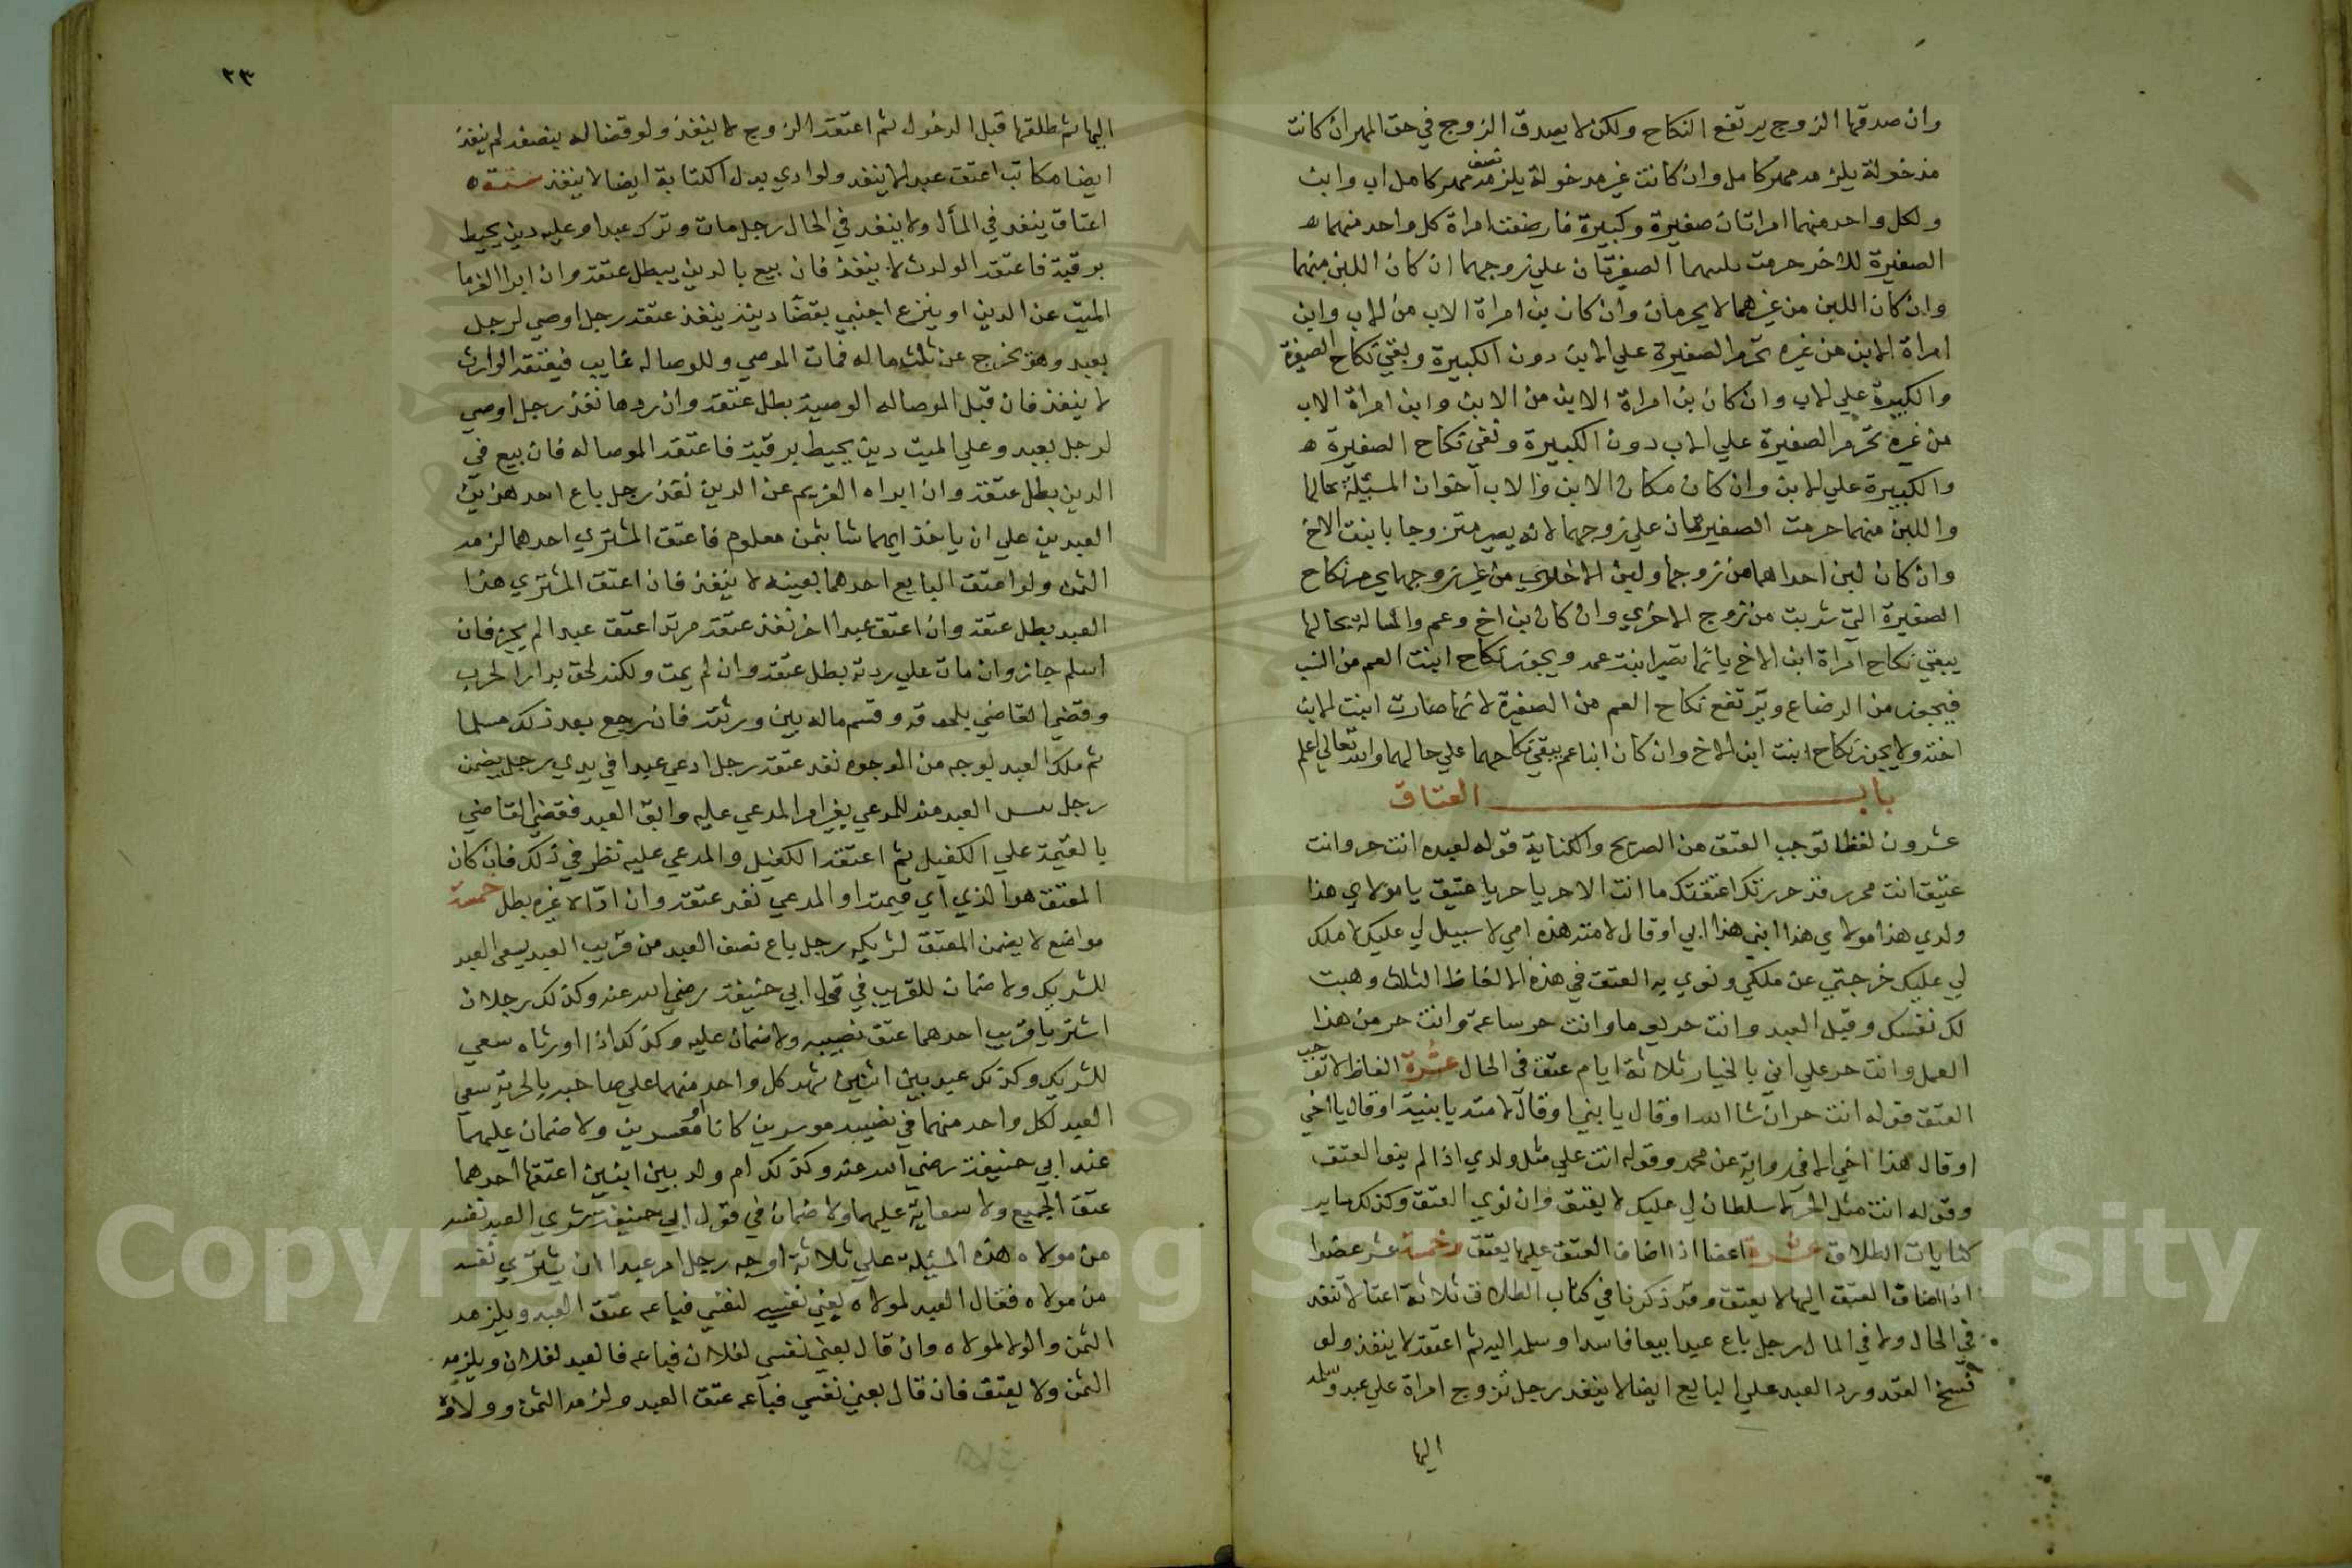 وان صدقها الزوج يرتفع النكاح ولكن لا يصدق الزوج في حق المهر ان كانت
مدخولة يلزمه مهر كامل وان كانت غير مدخولة يلزمه نصف مهر كامل اب وابن
ولكل واحد منهما امراتان صغيرة وكبيرة فارضعت امراة كل واحد منهما
الصغيرة للاخر حرمت عليهما الصغيرتان علي زوجهما ان كان اللبن منهما
وان كان اللبن من غيرهما لا يحرمان وان كان بن امراة الاب من الاب وابن
امراة الابن من غيره تحرم الصغيرة علي الابن دون الكبيرة وبقي نكاح الصغيرة
والكبيرة علي الاب وان كان بن امراة الابن من الابن وابن امراة الاب
من غيره تحرم الصغيرة علي الاب دون الكبيرة وبقي نكاح الصغيرة
والكبيرة علي الابن وان كان مكان الابن والاب اخوان المسئلة بحالها
واللبن منهما حرمت الصغيرتان علي زوجهما لانه يصير متزوجا بابنت الاخ
وان كان لبن احداهما من زوجها ولبن الاخري من غير زوجها يحرم نكاح
الصغيرة التي شربت من زوج الاخري وان كان بن اخ وعم والمسالة بحالها
يبقي نكاح امراة ابن الاخ يانما تصير ابنت عمه ويجوز نكاح ابنت العم من النسب
فيجوز من الرضاع ويرتفع نكاح العم من الصغيرة لانها صارت ابنت لابن
اخته ولا يجوز نكاح ابنت ابن الاخ وان كان ابنا عم يبقي نكاحهما علي حالهما والله تعالي اعلم
باب العتاق
عشرون لفظا توجب العتق من الصريح والكناية قوله لعبده انت حر وانت
عتيق انت محرر قد حررتك اعتقتك ما انت الا حر يا حر يا عتيق يا مولاي هذا
ولدي هذا مولاي هذا ابني هذا ابي او قال لامته هذه امي لا سبيل لي عليك لا ملك
لي عليك خرجتي عن ملكي ونوي به العتق في هذه الالفاظ الثلاث وهبت
لك نفسك وقبل العبد وانت حر يوما وانت حر ساعة وانت حر من هذا
العمل وانت حر علي اني بالخيار ثلاثة ايام عتق في الحال عشرة الفاظ لا توجب
العتق قوله انت حر ان شا الله او قال يا بني او قال لامته يا بنية او قال يا اخي
او قال هذا اخي الا في رواية عن محمد وقوله انت علي مثل ولدي اذا لم ينو العتق
وقوله انت مثل الحر لا سلطان لي عليك لا يعتق وان نوي العتق وكذلك ساير
كنايات الطلاق عشرة اعضا اذا اضاف العتق عليها يعتق وخمسة عشر عضوا
اذا اضاف العتق اليها لا يعتق وقد ذكرنا في كتاب الطلاق ثلاثة اعتا لا تنفذ
في الحال ولا في المال رجل باع عبدا بيعا فاسدا وسلمه اليه ثم اعتقه لا ينفذ ولو
فسخ العقد ورد العبد علي البايع ايضا لا ينفذ رجل تزوج امراة علي عبد وسلمه
اليها
٢٣
اليها ثم طلقها قبل الدخول ثم اعتقه الزوج لا ينفذ ولو قضا له بنصفه لم ينفذ
ايضا مكاتب اعتق عبدا لا ينفذ ولو ادي بدل الكتابة ايضا لا ينفذ ستة
اعتاق ينفذ في المأل ولا ينفذ في الحال رجل مات وترك عبدا وعليه دين يحيط
برقبته فاعتقه الوارث لا ينفذ فان بيع بالدين يبطل عتقه وان ابرا الغرما
الميت عن الدين او يتبرع اجنبي بقضا دينه ينفذ عتقه رجل اوصي لرجل
بعبد وهو يخرج عن ثلث ماله فمات الموصي وللوصا له غايب فيعتقه الوارث
لا ينفذ فان قبل الموصاله الوصية بطل عتقه وان ردها نفذ رجل اوصي
لرجل بعبد وعلي الميت دين يحيط برقبته فاعتقه الموصاله فان بيع في
الدين بطل عتقه وان ابراه الغريم عن الدين نفذ رجل باع احد هذين
العبدين علي ان ياخذ ايهما شا بثمن معلوم فاعتق المشتري احدهما لزمه
الثمن ولو اعتق البايع احدهما بعينه لا ينفذ فان اعتق المشتري هذا
العبد بطل عتقه وان اعتق عبدا اخر نفذ عتقه مرتد اعتق عبدا لم يجز فان
اسلم جاز وان مات علي ردته بطل عتقه وان لم يمت ولكنه لحق بدار الحرب
وقضي القاضي بلحوقه وقسم ماله بين ورثته فان رجع بعد ذلك مسلما
ثم ملك العبد بوجه من الوجوه نفذ عتقه رجل ادعي عبدا في يدي رجل يضمن
رجل العبد منه للمدعي بغير امر المدعي عليه وابق العبد فقضي القاضي
بالقيمة علي الكفيل ثم اعتقه الكفيل والمدعي عليه نظر في ذلك فان كان
المعتق هو الذي ادي قيمته او المدعي نفذ عتقه وان ادا الا غيره بطل خمسة
مواضع لا يضمن المعتق لشريكه رجل باع نصف العبد من قريب العبد يسعي العبد
للشريك ولا ضمان للقريب في قول ابي حنيفة رضي الله عنه وكذلك رجلان
اشتريا قريب احدهما عتق نصيبه ولا ضمان عليه وكذلك اذا اورثاه سعي
للشريك وكذلك عبد بين اثنين شهد كل واحد منهما علي صاحبه بالحرية سعي
العبد لكل واحد منهما في نصيبه موسرين كانا او معسرين ولا ضمان عليهما
عند ابي حنيفة رضي الله عنه وكذلك ام ولد بين اثنين اعتقها احدهما
عتق الجميع ولا سعاية عليهما ولا ضمان في قول ابي حنيفة شري العبد نفسه
من مولاه هذه المسئلة علي ثلاثة اوجه رجل امر عبدا ان يشتري نفسه
من مولاه فقال العبد لمولاه بعني نفسي لنفسي فباعه عتق العبد ويلزمه
الثمن والولا لمولاه وان قال بعني نفسي لفلان فباعه فالعبد لفلان ويلزمه
الثمن ولا يعتق فان قال بعني نفسي فباعه عتق العبد ولزمه الثمن وولاؤه
Copyright © King Saud University